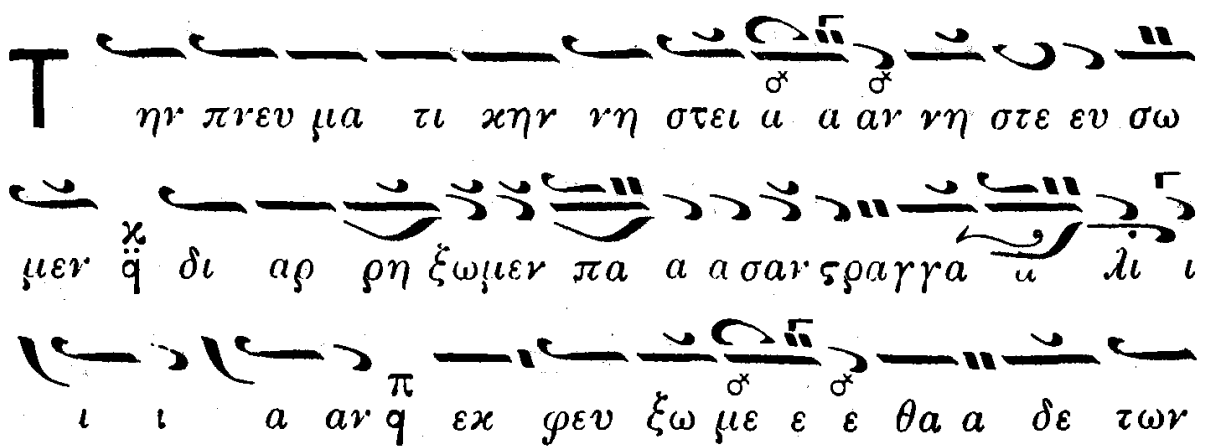 Τ ην πνευ μα τι κην νη στει α α αν νη στε ευ σω
μεν κ q δι αρ ρη ξωμεν πα α α σαν ςραγγα α λι ι
ι ι α αν π q εκ φευ ξω με ε ε θα α δε των